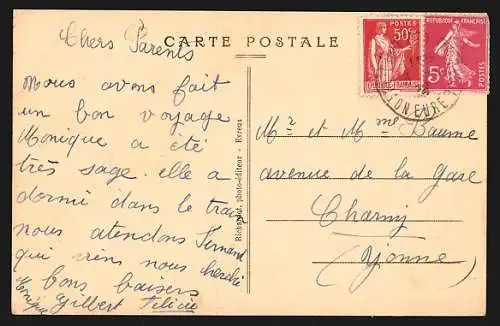 Chers Parents
CARTE POSTALE
Nous avons fait
un bon voyage
Monique a été
très sage. elle a
dormi dans le train
nous attendons Fernand
qui viens nous cherché
bons baisers
Monique Gilbert Félicie
photo-éditeur - Evreux
REPUBLIQUE FRANÇAISE
50c
POSTES
REPUBLIQUE FRANÇAISE
5c
POSTES
EURE
Mr et Mme Baume
avenue de la Gare
Charny
(Yonne)